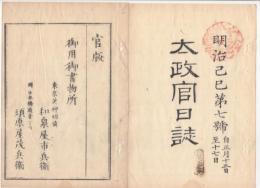 明治己巳第七號
自正月十三日
至十七日
太政官日誌
官版
御用御書物所
東京芝神明前
和泉屋市兵衛
須原屋茂兵衛